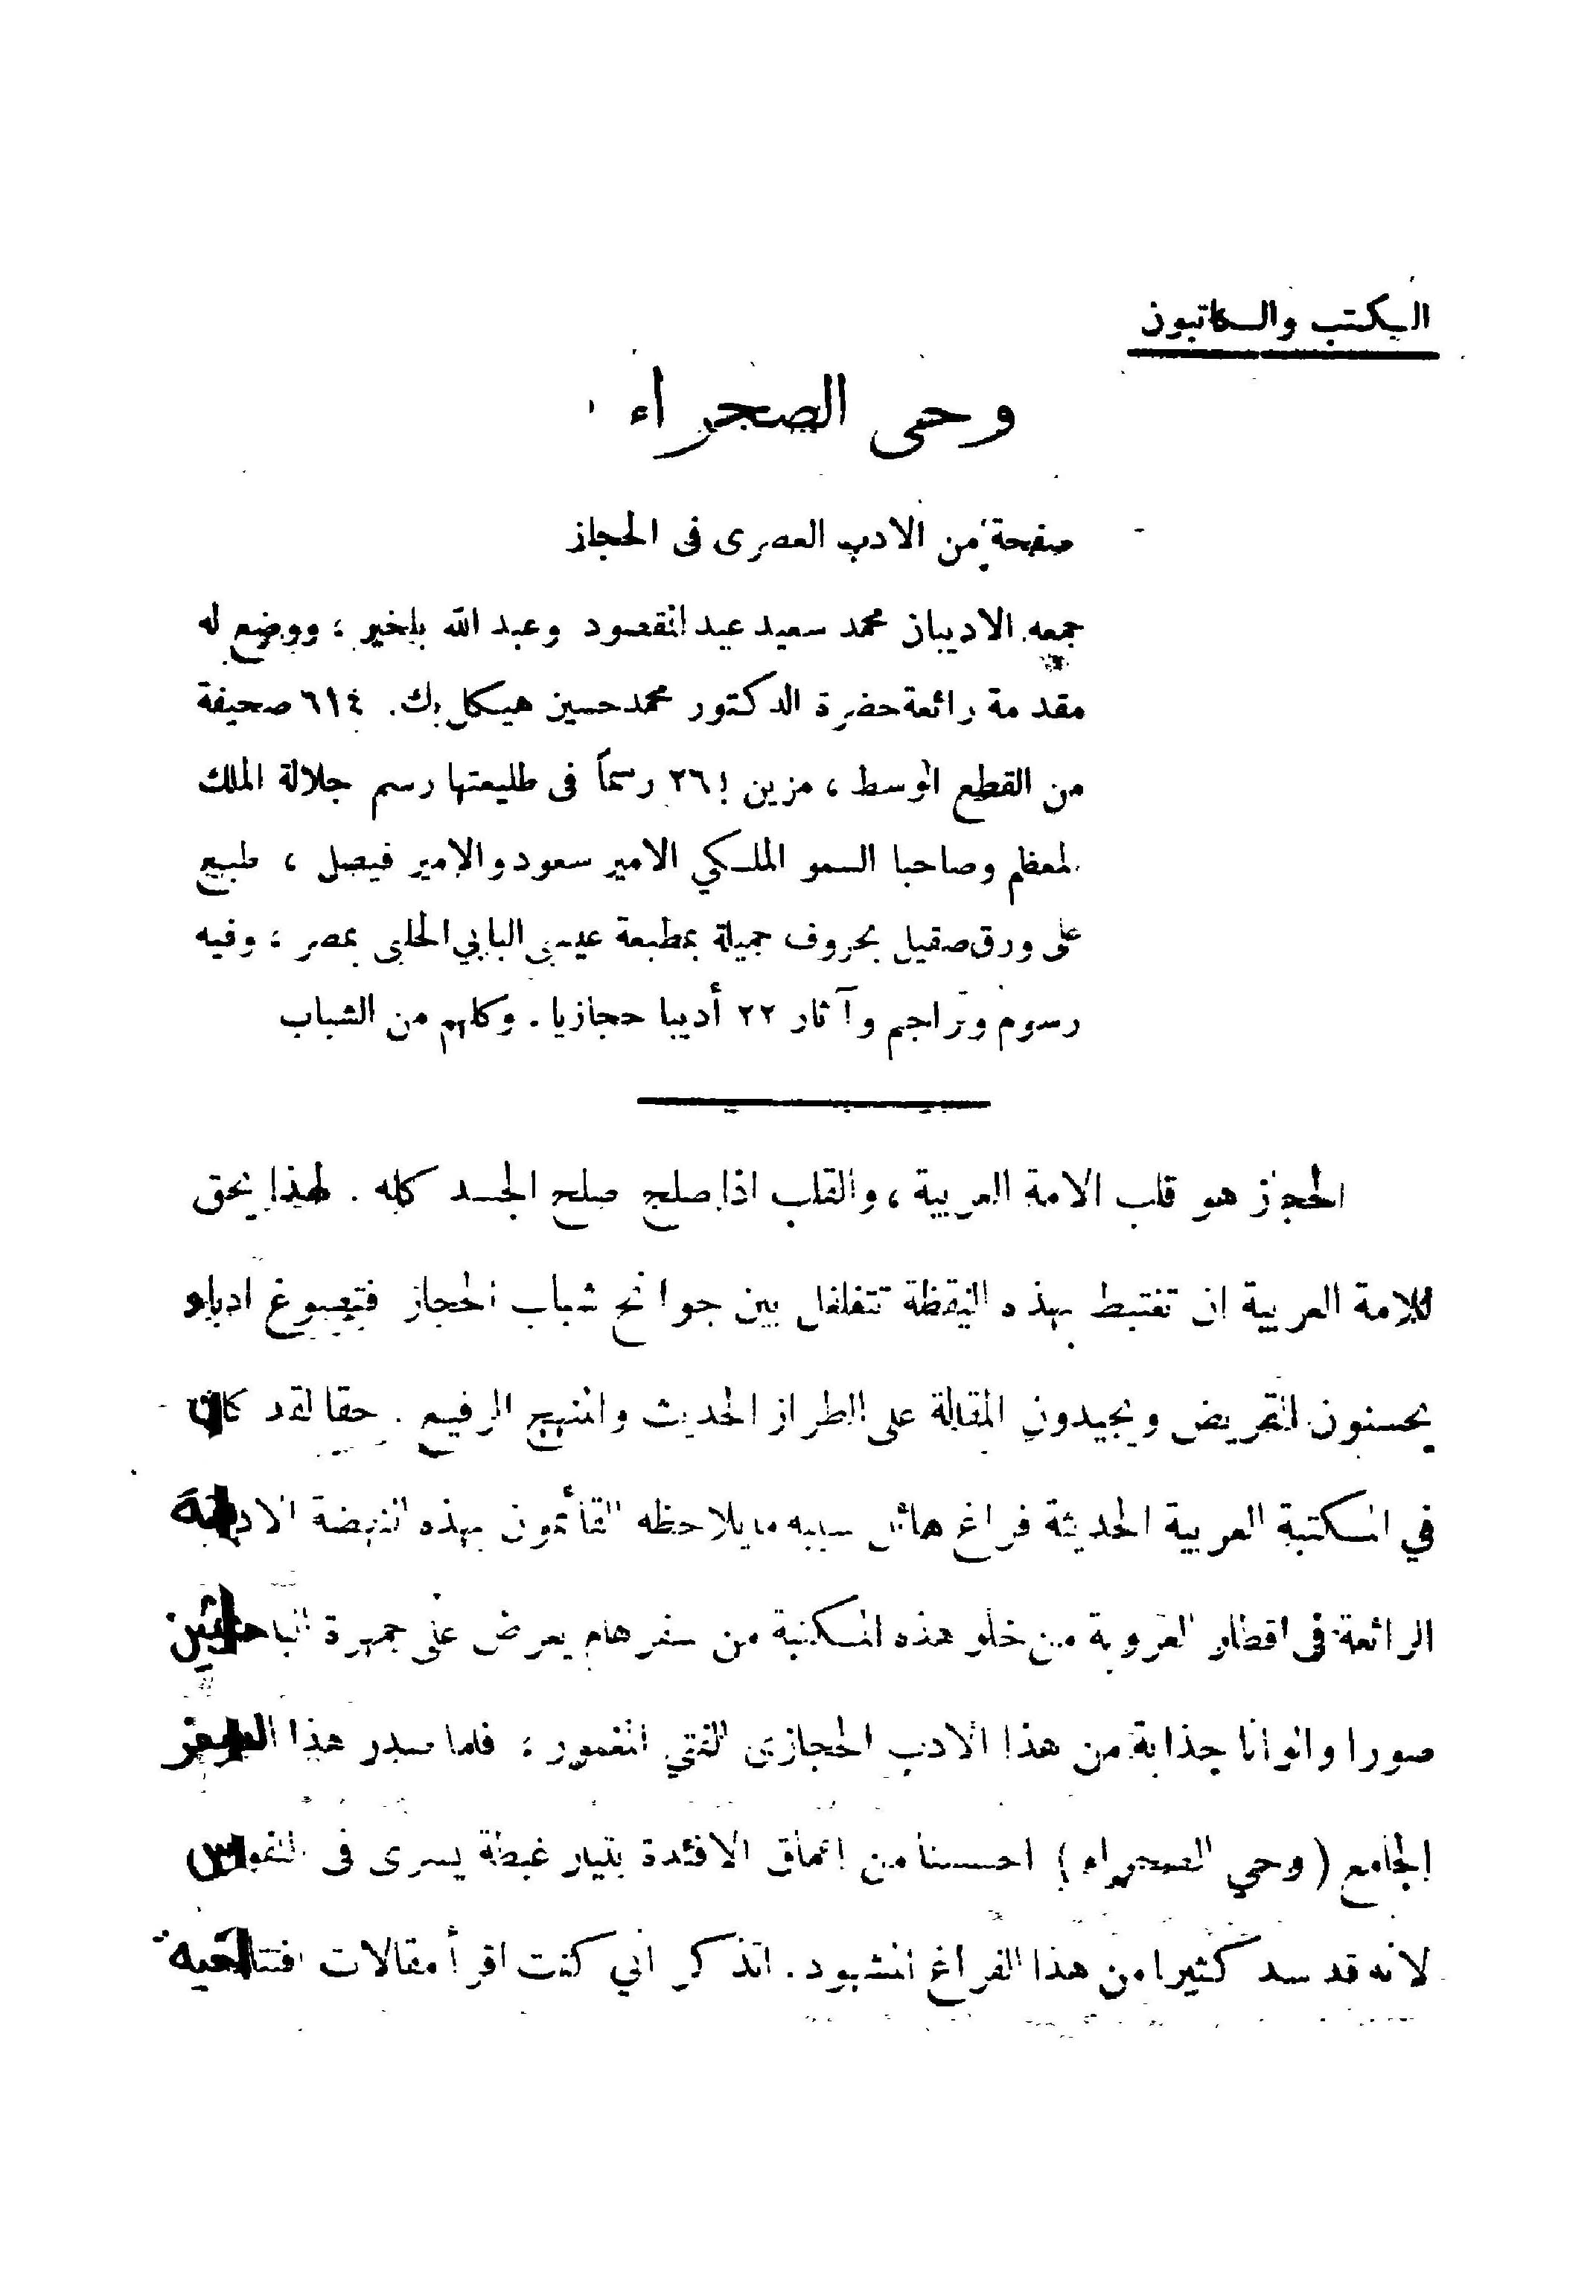 الكتب والكاتبون
وحى الصحراء
صفحة من الادب العصرى فى الحجاز
جمعه الاديبان محمد سعيد عبد المقصود وعبد الله بلخير ، ووضع له
مقدمة رائعة حضرة الدكتور محمد حسين هيكل بك. ٦١٤ صحيفة
من القطع الوسط ، مزين بـ ٢٦ رسماً فى طليعتها رسم جلالة الملك
المعظم وصاحبا السمو الملكي الامير سعود والامير فيصل ، طبع
على ورق صقيل بحروف جميلة بمطبعة عيسى البابي الحلبى بمصر ، وفيه
رسوم وتراجم وآثار ٢٢ أديبا حجازيا . وكلهم من الشباب
الحجاز هو قلب الامة العربية ، والقلب اذا صلح صلح الجسد كله . لهذا يحق
للامة العربية ان تغتبط بهذه اليقظة تتغلغل بين جوانح شباب الحجاز فتصوغ ادباء
يحسنون القريض ويجيدون المقالة على الطراز الحديث والمنهج الرفيع . حقا لقد كان
في المكتبة العربية الحديثة فراغ هائل سببه ما يلاحظه القائمون بهذه النهضة الادبية
الرائعة فى اقطار العروبة من خلو هذه المكتبة من سفر هام يعرض على جمهرة الباحثين
صورا والوانا جذابة من هذا الادب الحجازى الفتي المغمور ; فلما صدر هذا السفر
الجامع ( وحي الصحراء ) احسسنا من اعماق الافئدة بتيار غبطة يسرى فى النفوس
لانه قد سد كثيرا من هذا الفراغ المشهود . اتذكر اني كنت اقرأ مقالات افتتاحية